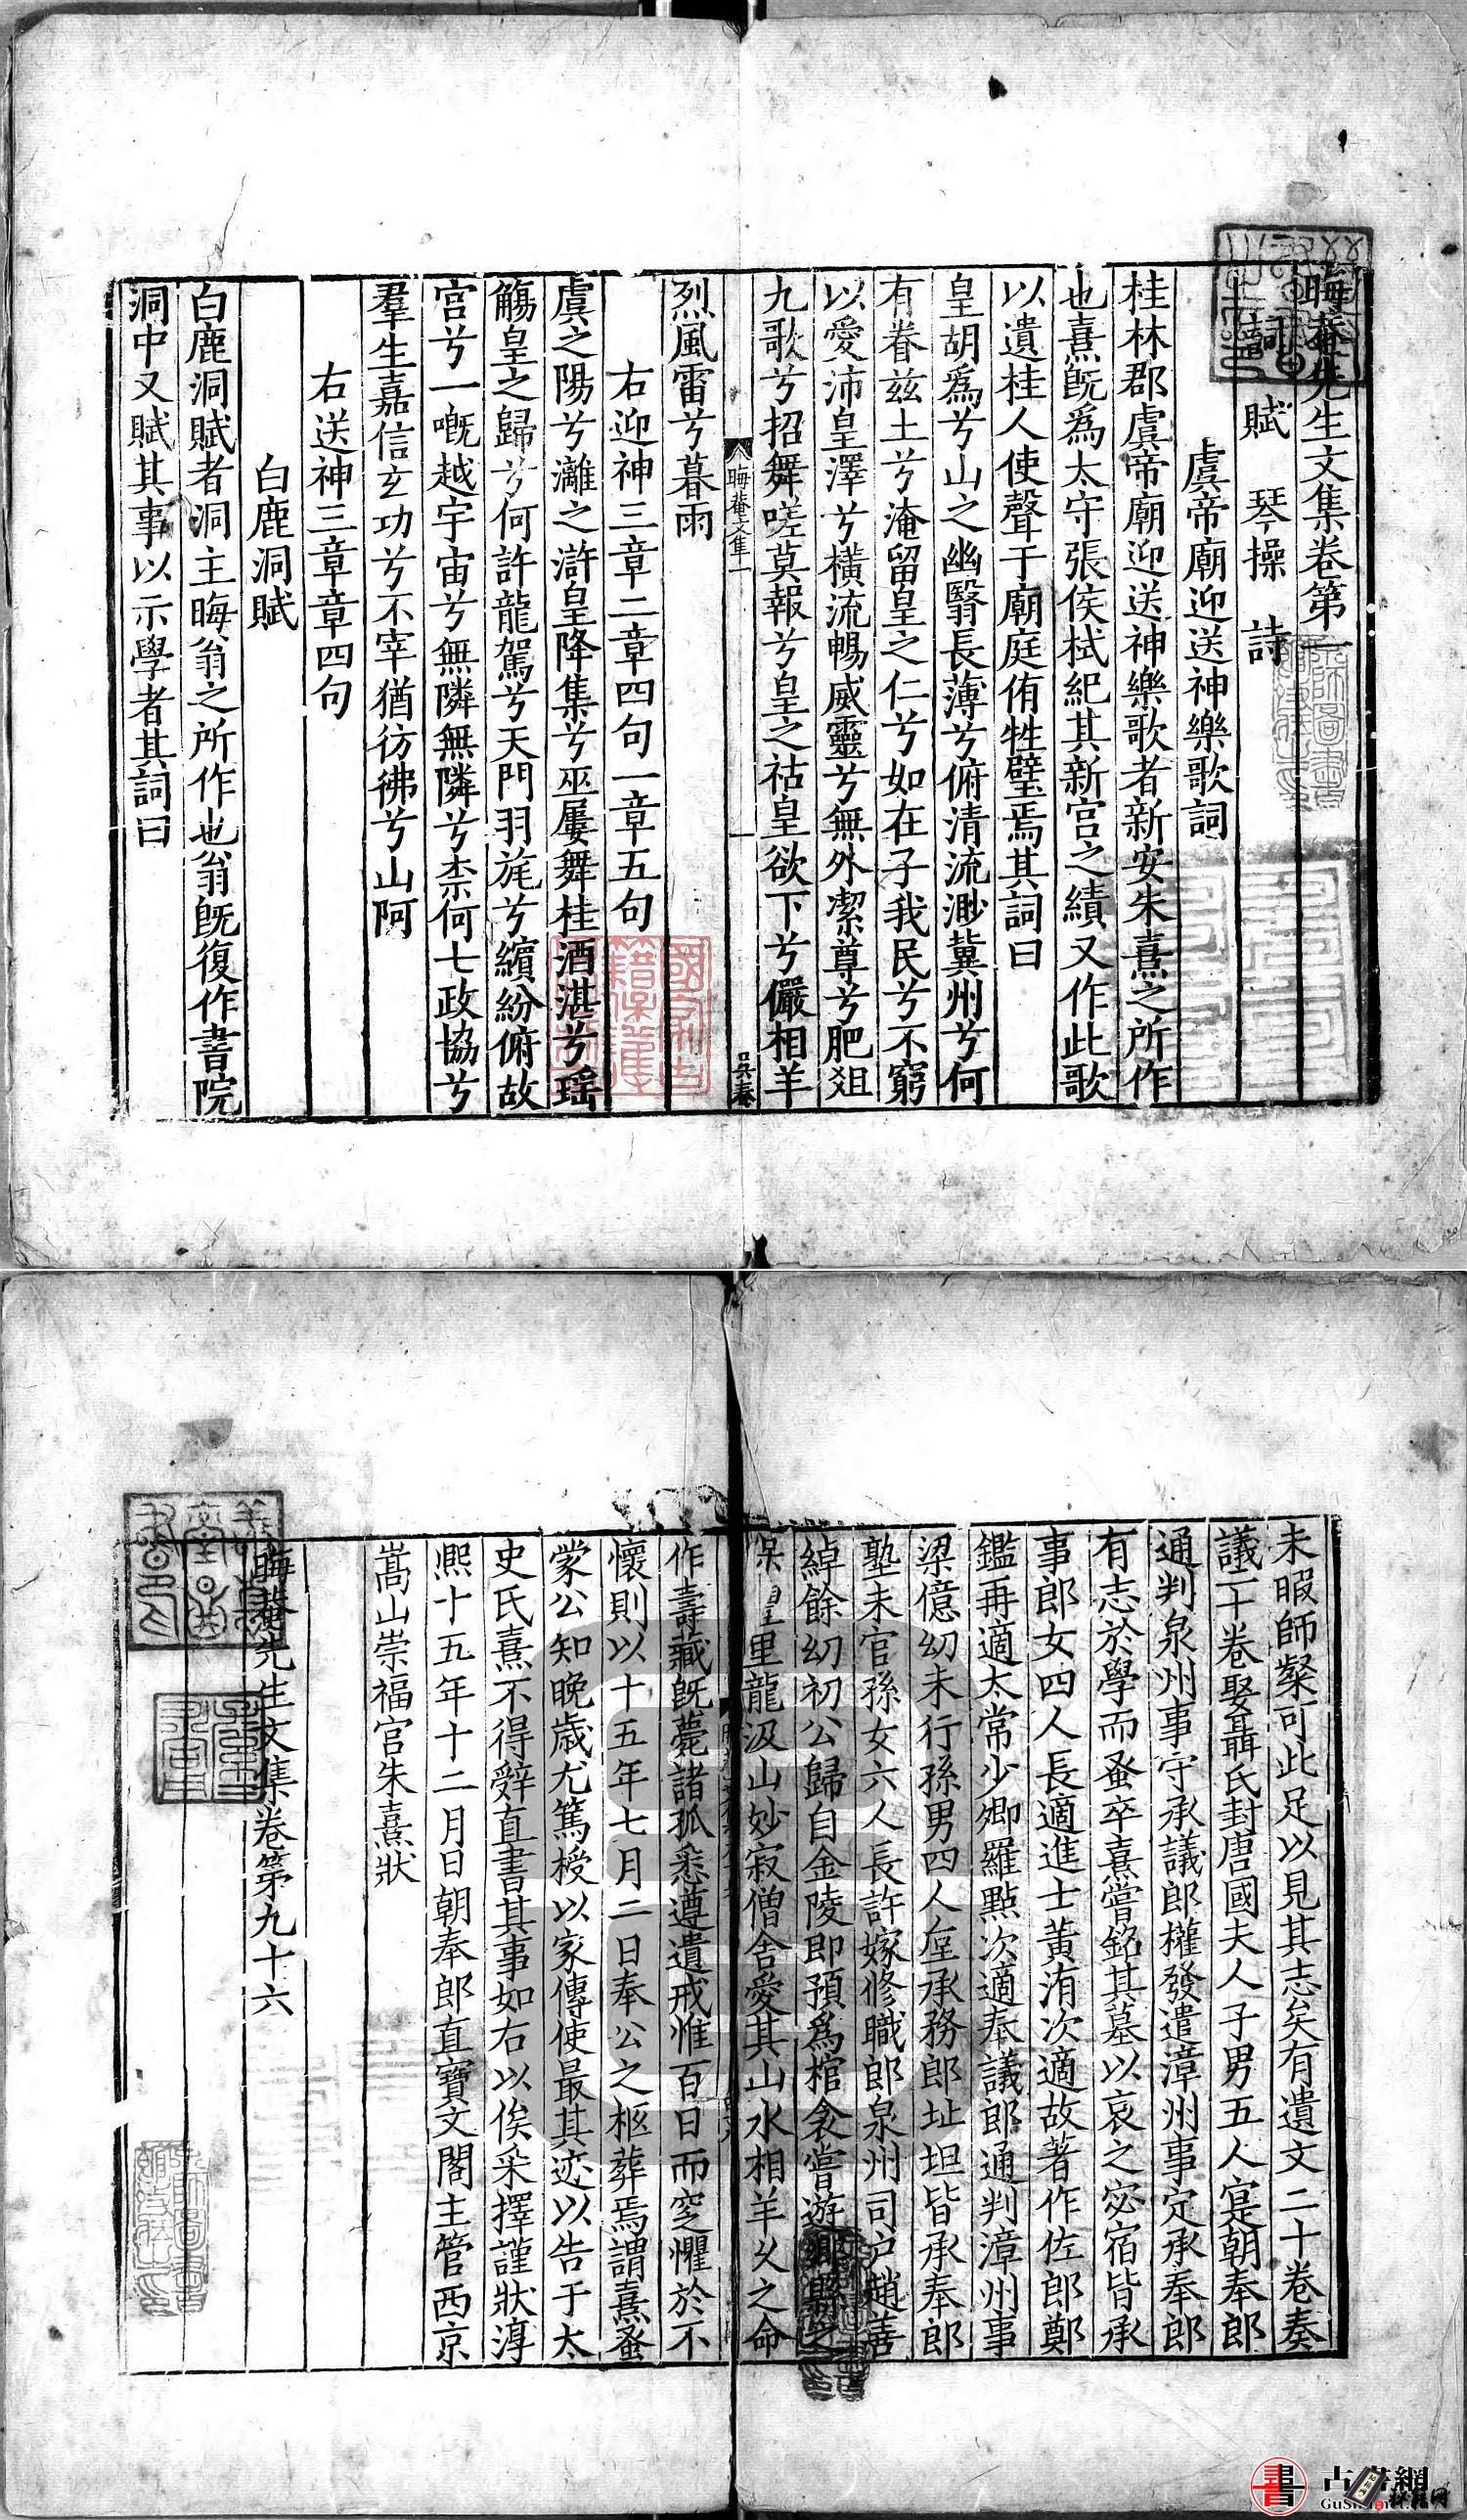 晦菴先生文集卷第一
詞 賦 琴操 詩
虞帝廟迎送神樂歌詞
桂林郡虞帝廟迎送神樂歌者新安朱熹之所作
也熹旣爲太守張侯栻紀其新宫之績又作此歌
以遺桂人使聲于廟庭侑牲璧焉其詞曰
皇胡爲兮山之幽翳長薄兮俯清流渺兾州兮何
有眷兹土兮淹留皇之仁兮如在子我民兮不窮
以愛沛皇澤兮横流暢威靈兮無外潔尊兮肥俎
九歌兮招舞嗟莫報兮皇之祜皇欲下兮儼相羊
晦菴文集一
一
吴春
烈風雷兮暮雨
右迎神三章二章四句一章五句
虞之陽兮灕之滸皇降集兮巫屢舞桂酒湛兮瑶
觴皇之歸兮何許龍駕兮天門羽旄兮繽紛俯故
宫兮一嘅越宇宙兮無隣無隣兮柰何七政協兮
羣生嘉信玄功兮不宰猶彷彿兮山阿
右送神三章章四句
白鹿洞賦
白鹿洞賦者洞主晦翁之所作也翁旣復作書院
洞中又賦其事以示學者其詞曰
未暇師粲可此足以見其志矣有遺文二十卷奏
議二十卷娶聶氏封唐國夫人子男五人寔朝奉郎
通判泉州事守承議郎權發遣漳州事定承奉郎
有志於學而蚤卒熹嘗銘其墓以哀之宓宿皆承
事郎女四人長適進士黄洧次適故著作佐郎鄭
鑑再適太常少卿羅點次適奉議郎通判漳州事
梁億幼未行孫男四人垕承務郎址坦皆承奉郎
塾未官孫女六人長許嫁修職郎泉州司户趙善
綽餘幼初公歸自金陵即預爲棺衾嘗遊鄉縣之
里龍汲山妙寂僧舍愛其山水相羊久之命
作壽藏旣薨諸孤悉遵遺戒惟百日而窆懼於不
懷則以十五年七月二日奉公之柩葬焉謂熹蚤
蒙公知晚歳尤篤授以家傳使最其迹以告于太
史氏熹不得辭直書其事如右以俟采擇謹狀淳
熈十五年十二月日朝奉郎直寶文閣主管西京
嵩山崇福宫朱熹狀
晦菴先生文集卷第九十六
書
古書網